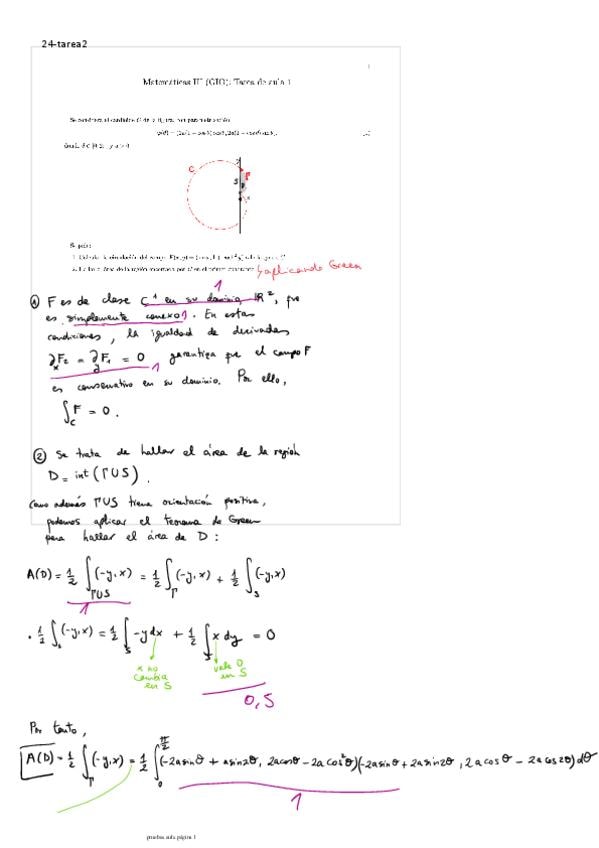 24-tarea2
1
Matemáticas III (GIO): Tarea de aula 1
Se considera el cardioide
C
S
Γ
Se pide:
1. Calcula la circulación del campo
2. Halla el área de la región encerrada por
aplicando Green
1
① F es de clase C¹ en su dominio ℝ², que
es simplemente conexo 1. En estas
condiciones, la igualdad de derivadas
∂F₂ = ∂F₁ = 0 garantiza que el campo F
x
1
es conservativo en su dominio. Por ello,
∫_C F = 0.
② Se trata de hallar el área de la región
D = int(Γ∪S).
Como además Γ∪S tiene orientación positiva,
podemos aplicar el teorema de Green
para hallar el área de D:
A(D) = 1/2 ∫_Γ∪S (-y,x) = 1/2 ∫_Γ (-y,x) + 1/2 ∫_S (-y,x)
1
· 1/2 ∫_S (-y,x) = 1/2 ∫_S -y dx + 1/2 ∫_S x dy = 0
x no cambia en S
vale 0 en S
0,5
Por tanto,
A(D) = 1/2 ∫_Γ (-y,x) = 1/2 ∫_0^π/2 (-2a sinθ + a sin2θ, 2a cosθ - 2a cos²θ)(-2a sinθ + 2a sin2θ, 2a cosθ - 2a cos2θ) dθ
1
pruebas aula página 1